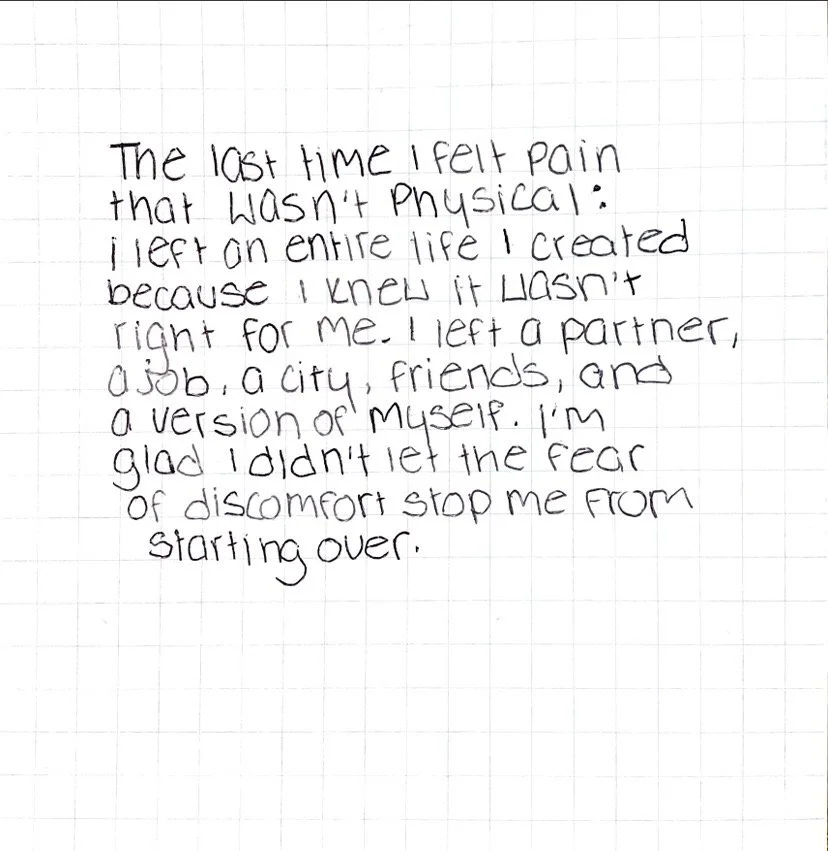 The last time I felt pain
that wasn't physical:
i left an entire life I created
because I knew it wasn't
right for me. I left a partner,
a job, a city, friends, and
a version of myself. I'm
glad I didn't let the fear
of discomfort stop me from
starting over.